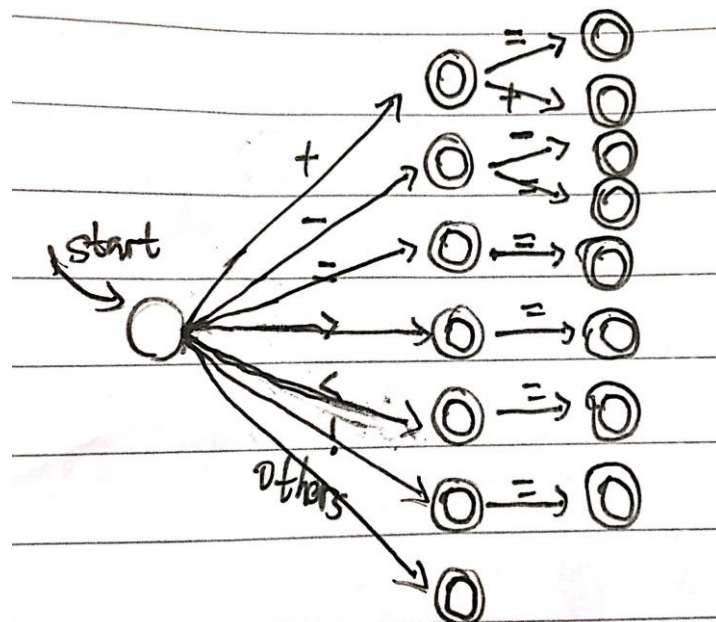 =
+
+
-
-
=
start
=
=
>
=
<
=
!
=
others